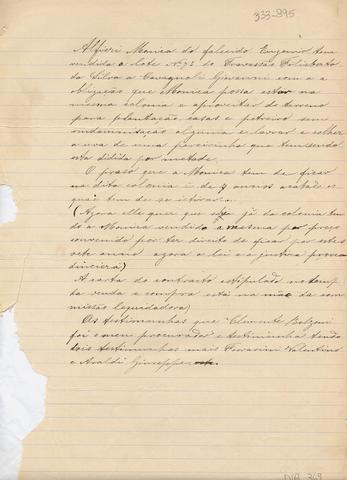 333-395
Alfieri Monica do falecido Eugenio tem
vendido o lote Nº 73 do Travessão Felisberto
da Silva a Cavagnoli Giovanni com a
obligação que Monica possa estar na
mesma colonia e aproveitar do terreno
para plantação casas e potreiro sem
endemnisação alguma e lavrar e colher
a uva de uma parreirinha que tem sendo
esta didida por metade.
O praso que a Monica tem de ficar
na dita colonia é de 7 annos
que tem de se
(Agora elle quer que já da colonia ten
do a Monica vendido a mesma por preço
convenido por ter direto de ficar por estes
sete anno agora a lei e a justiça
)
A carta do contraito estipulado no temp
da venda e compra está na mão da com
missão lequidadora)
Os testimunhas que Clemente Bolzoni
foi o meu procurador e testimunha tendo
dois testimunhas mais Ferrarini Valentino
e Araldi Giuseppe